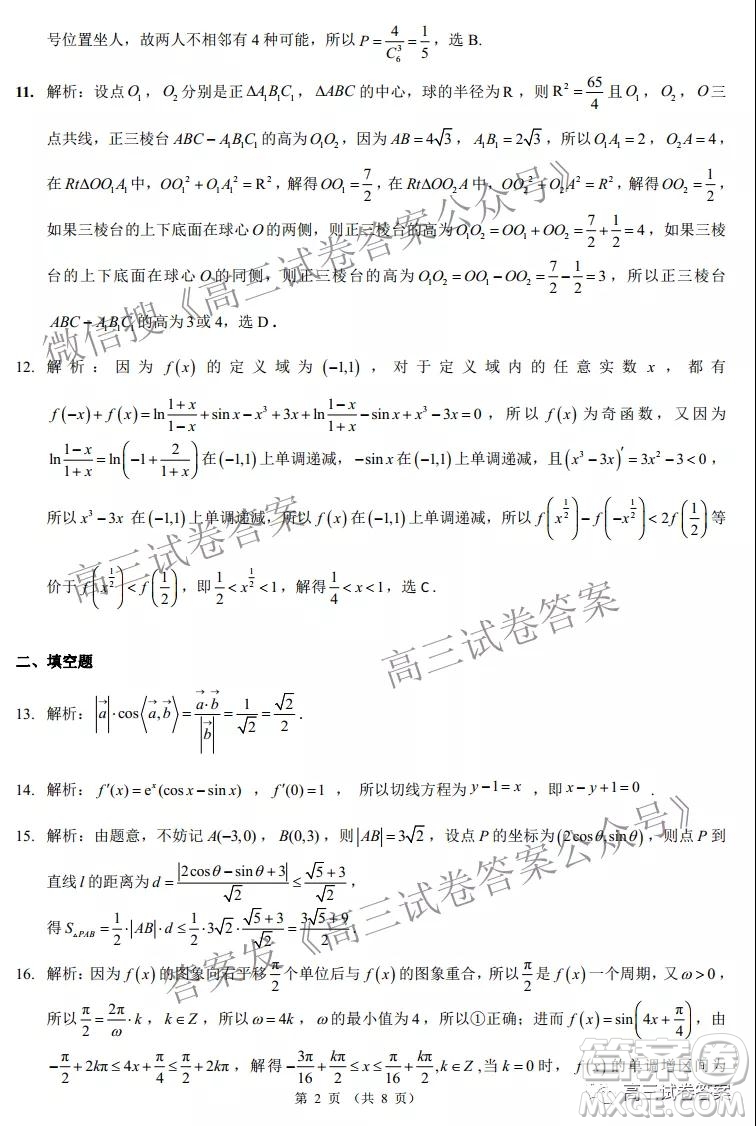 号位置坐人，故两人不相邻有 4 种可能，所以 P = 4/C₆³ = 1/5，选 B.
11. 解析：设点 O₁，O₂ 分别是正 ΔA₁B₁C₁，ΔABC 的中心，球的半径为 R，则 R² = 65/4 且 O₁，O₂，O 三
点共线，正三棱台 ABC − A₁B₁C₁ 的高为 O₁O₂，因为 AB = 4√3，A₁B₁ = 2√3，所以 O₁A₁ = 2，O₂A = 4，
在 RtΔOO₁A₁ 中，OO₁² + O₁A₁² = R²，解得 OO₁ = 7/2，在 RtΔOO₂A 中，OO₂² + O₂A² = R²，解得 OO₂ = 1/2，
如果三棱台的上下底面在球心 O 的两侧，则正三棱台的高为 O₁O₂ = OO₁ + OO₂ = 7/2 + 1/2 = 4，如果三棱
台的上下底面在球心 O 的同侧，则正三棱台的高为 O₁O₂ = OO₁ − OO₂ = 7/2 − 1/2 = 3，所以正三棱台
ABC − A₁B₁C₁ 的高为 3 或 4，选 D．
12. 解析：因为 f(x) 的定义域为 (−1,1)，对于定义域内的任意实数 x，都有
f(−x) + f(x) = ln (1+x)/(1−x) + sin x − x³ + 3x + ln (1−x)/(1+x) − sin x + x³ − 3x = 0，所以 f(x) 为奇函数，又因为
ln (1−x)/(1+x) = ln(−1 + 2/(1+x)) 在 (−1,1) 上单调递减，−sin x 在 (−1,1) 上单调递减，且 (x³ − 3x)′ = 3x² − 3 < 0，
所以 x³ − 3x 在 (−1,1) 上单调递减，所以 f(x) 在 (−1,1) 上单调递减，所以 f(x^(1/2)) − f(−x^(1/2)) < 2f(1/2) 等
价于 f(x^(1/2)) < f(1/2)，即 1/2 < x^(1/2) < 1，解得 1/4 < x < 1，选 C．
二、填空题
13. 解析：|a⃗|·cos⟨a⃗,b⃗⟩ = (a⃗·b⃗)/|b⃗| = 1/√2 = √2/2．
14. 解析：f′(x) = eˣ(cos x − sin x)，f′(0) = 1，所以切线方程为 y − 1 = x，即 x − y + 1 = 0．
15. 解析：由题意，不妨记 A(−3,0)，B(0,3)，则 |AB| = 3√2，设点 P 的坐标为 (2cosθ,sinθ)，则点 P 到
直线 l 的距离为 d = |2cosθ − sinθ + 3|/√2 ≤ (√5 + 3)/√2，
得 S△PAB = 1/2·|AB|·d ≤ 1/2·3√2·(√5 + 3)/√2 = (3√5 + 9)/2．
16. 解析：因为 f(x) 的图象向右平移 π/2 个单位后与 f(x) 的图象重合，所以 π/2 是 f(x) 一个周期，又 ω > 0，
所以 π/2 = 2π/ω·k，k∈Z，所以 ω = 4k，ω 的最小值为 4，所以①正确；进而 f(x) = sin(4x + π/4)，由
−π/2 + 2kπ ≤ 4x + π/4 ≤ π/2 + 2kπ，解得 −3π/16 + kπ/2 ≤ x ≤ π/16 + kπ/2, k∈Z，当 k = 0 时，f(x) 的单调增区间为
第 2 页 （共 8 页）
微信搜《高三试卷答案公众号》
高三试卷答案
高三试卷答案
答案发《高三试卷答案公众号》
高三试卷答案